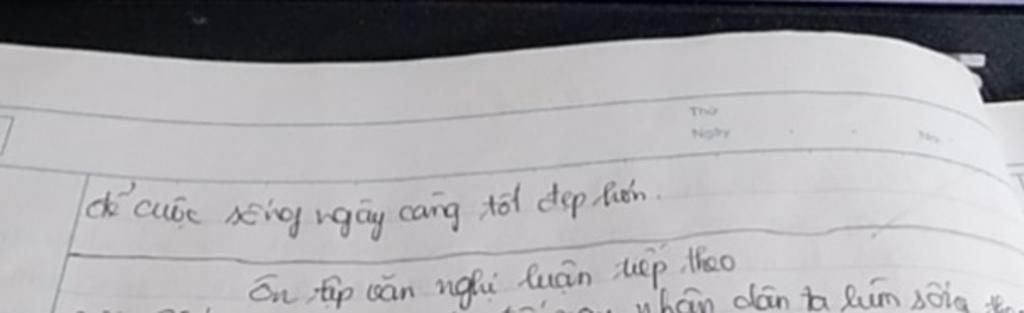 Thứ
Ngày No
để cuộc sống ngày càng tốt đẹp hơn.
Ôn tập văn nghị luận tiếp theo
nhân dân ta luôn sống